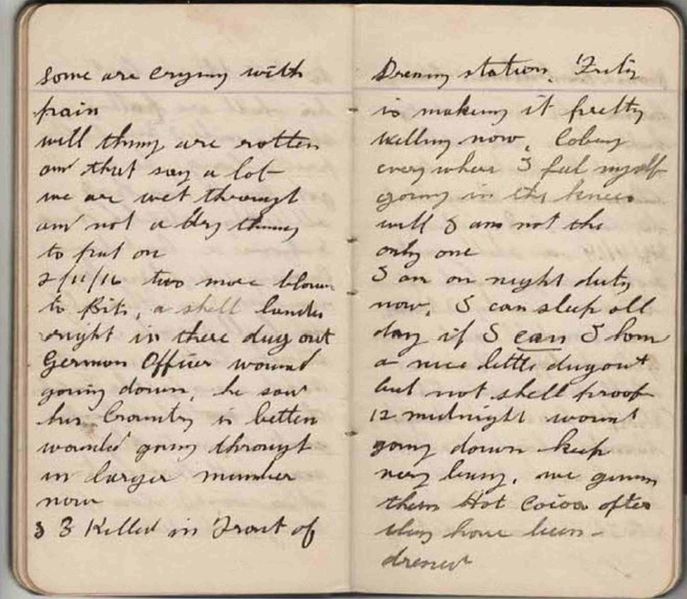 Some are crying with
pain
will thing are rotten
and that say a lot
we are wet through
and not a dry thing
to put on
2/11/16 two more blown
to Bits, a shell landed
right in there dug out
German Officer wound
going down, he saw
his Country is betten
wounded going through
in larger number
now
3 3 Killed in Front of
Dressing station. Fritz
is making it pretty
killing now,
every where I feel myself
going in the knees
will I am not the
only one
I am on night duty
now, I can sleep all
day if I can I have
a nice little dugout
but not shell proof
12 midnight wount
going down keep
very busy, we given
them Hot Cocoa after
they have been
dressed